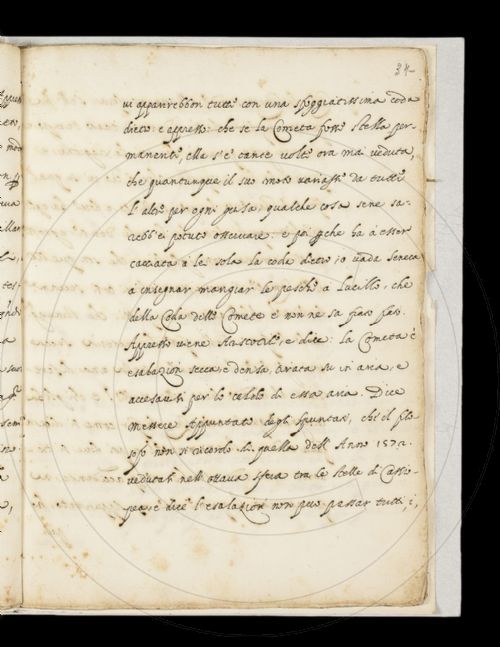 34
vi apparirebbon tutte con una sfoggiatissima coda
dietro: e appresso: che se la Cometa fosse stella per-
manente, ella s'è tante volte ora mai veduta,
che quantunque il suo moto variasse da tutti
l'altre per ogni qualche cosa sene sa-
rebb'ei potuto osservare: e poi perche ha a esser
cacciata a lei sola la coda dietro; o vada Seneca
a insegnar mangiar le pesche a Lucillo, che
della Coda delle Comete e' non ne sa fiato fiato.
Appresso viene Aristotile, e dice: la Cometa è
esalazion secca, e densa, tirata su in aria, e
accesavisi per lo caldo di essa aria. Dice
messere Appuntato degli Spuntati, che il filo
sofo non si ricordò di quella dell'Anno 1572.
vedutasi nell'ottava sfera tra le stelle di Cassio-
pea, e dice l'esalazioni non pon passar tutti i,